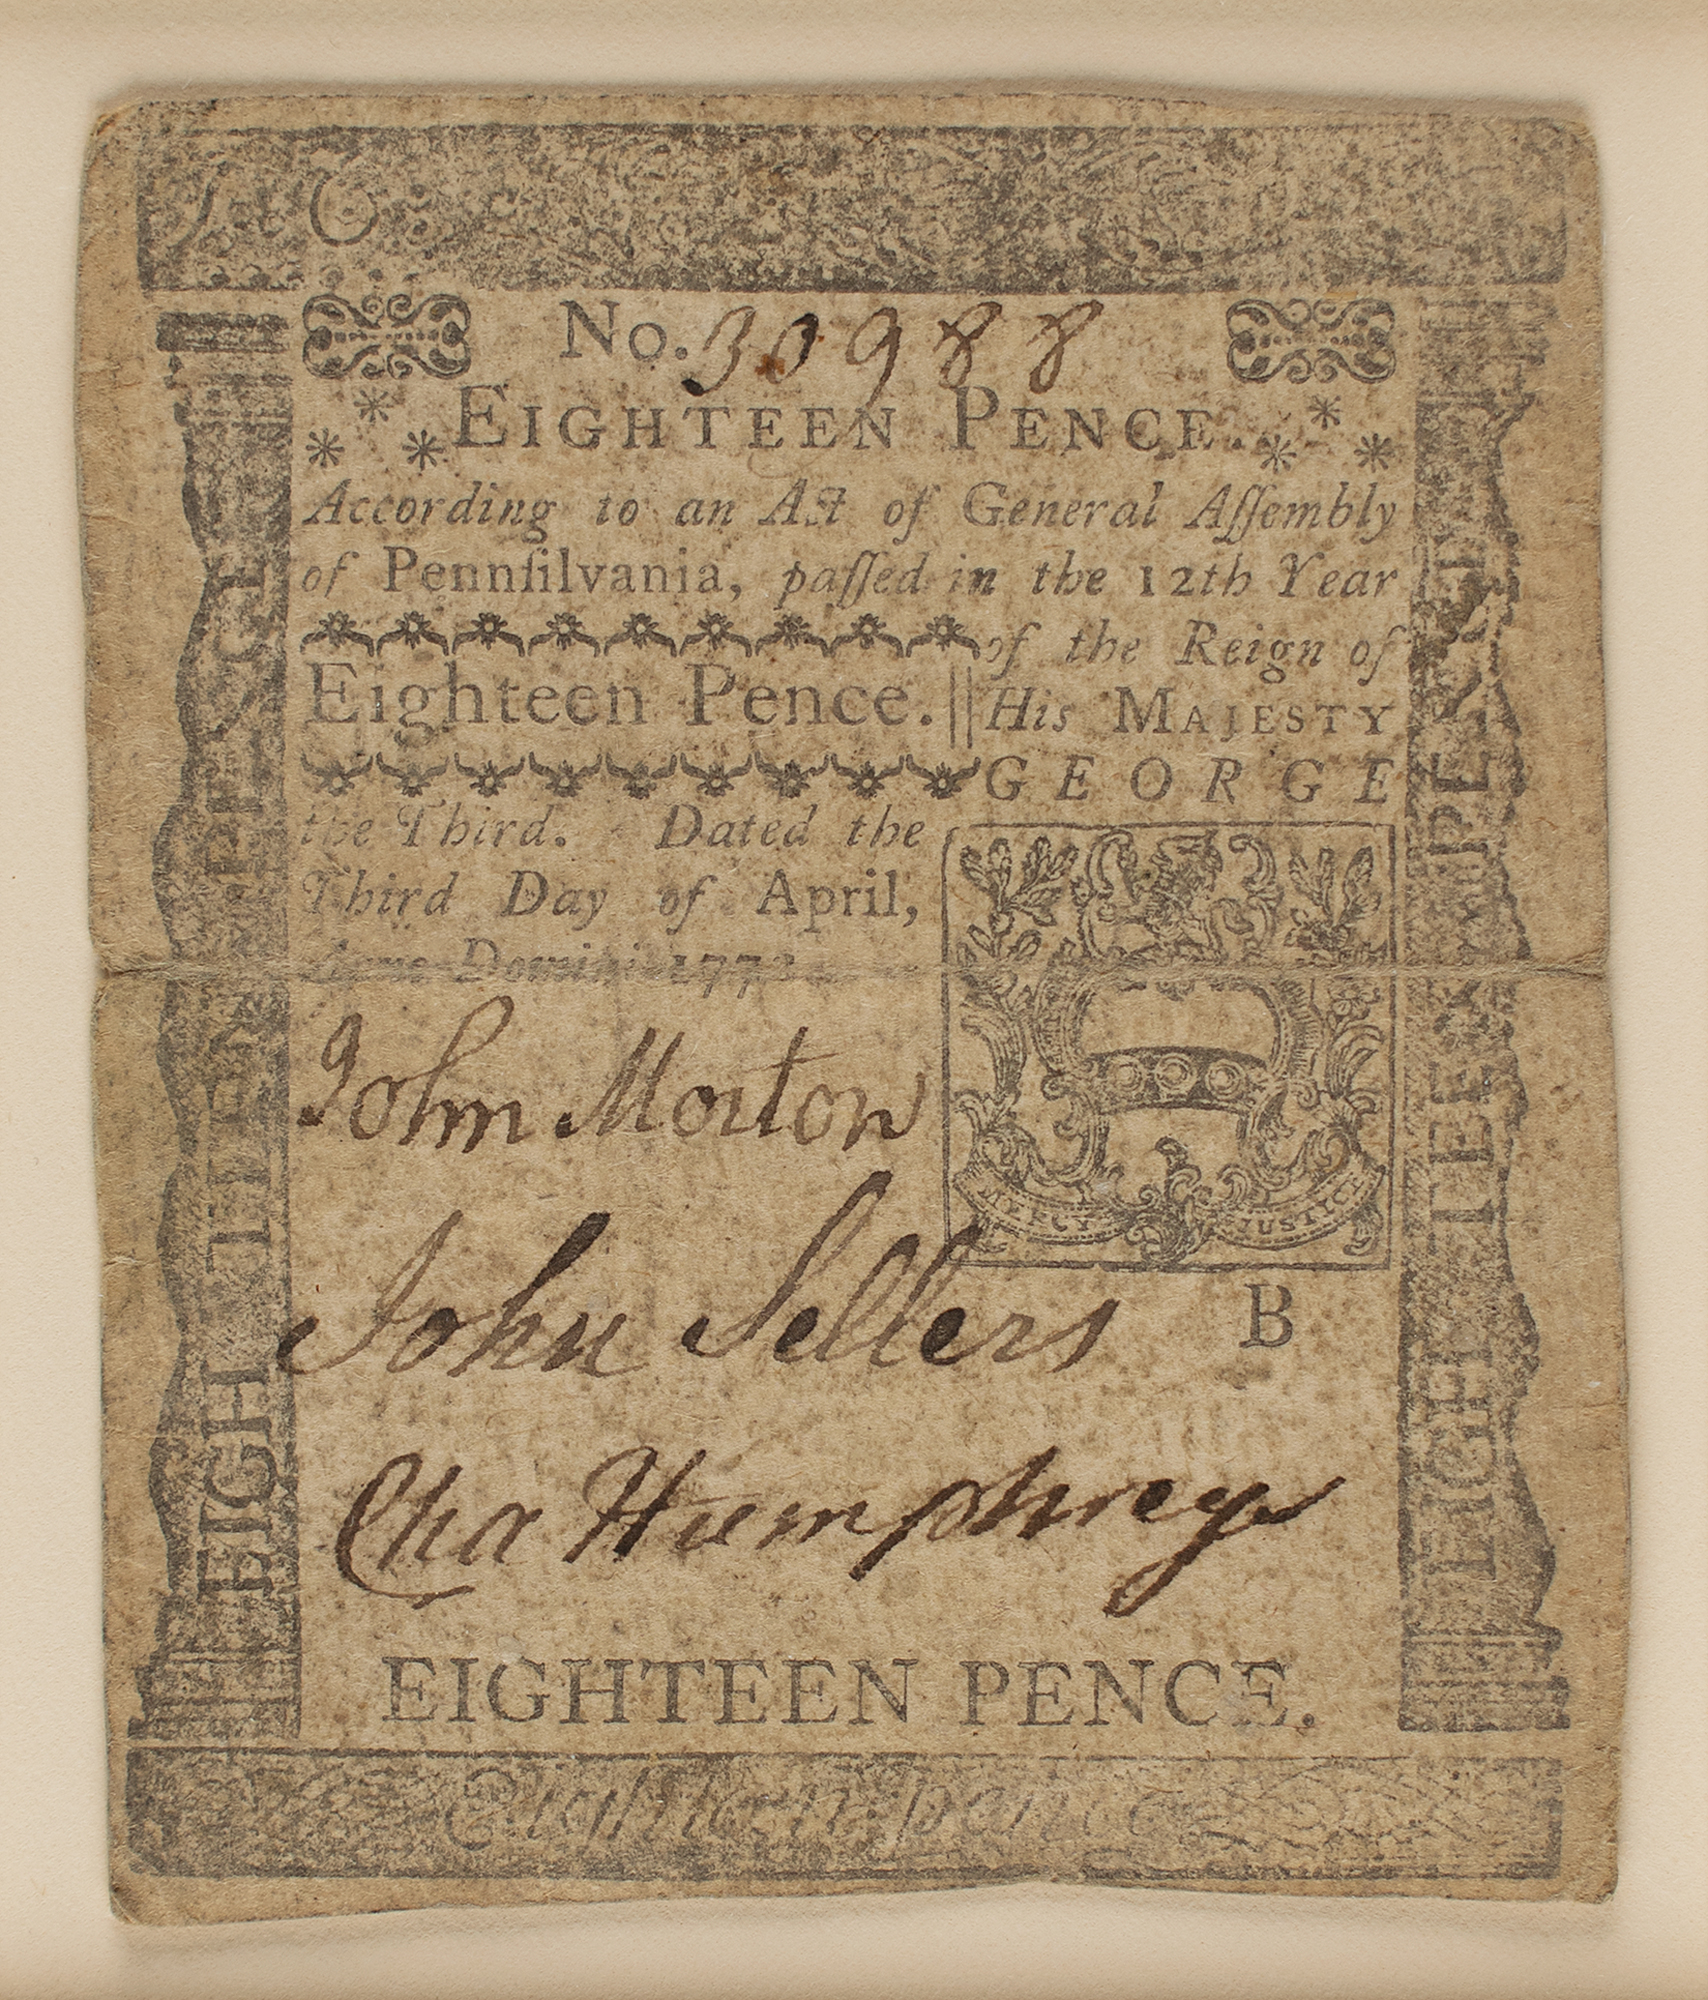 No. 30988
EIGHTEEN PENCE.
According to an Act of General Aſſembly
of Pennſilvania, paſſed in the 12th Year
of the Reign of
Eighteen Pence. His MAJESTY
GEORGE
the Third. Dated the
Third Day of April,
Anno Domini 1772.
John Morton
MERCY JUSTICE
John Sellers
B
Cha Humphreys
EIGHTEEN PENCE.
Eighteen pence
EIGHTEEN PENCE
EIGHTEEN PENCE